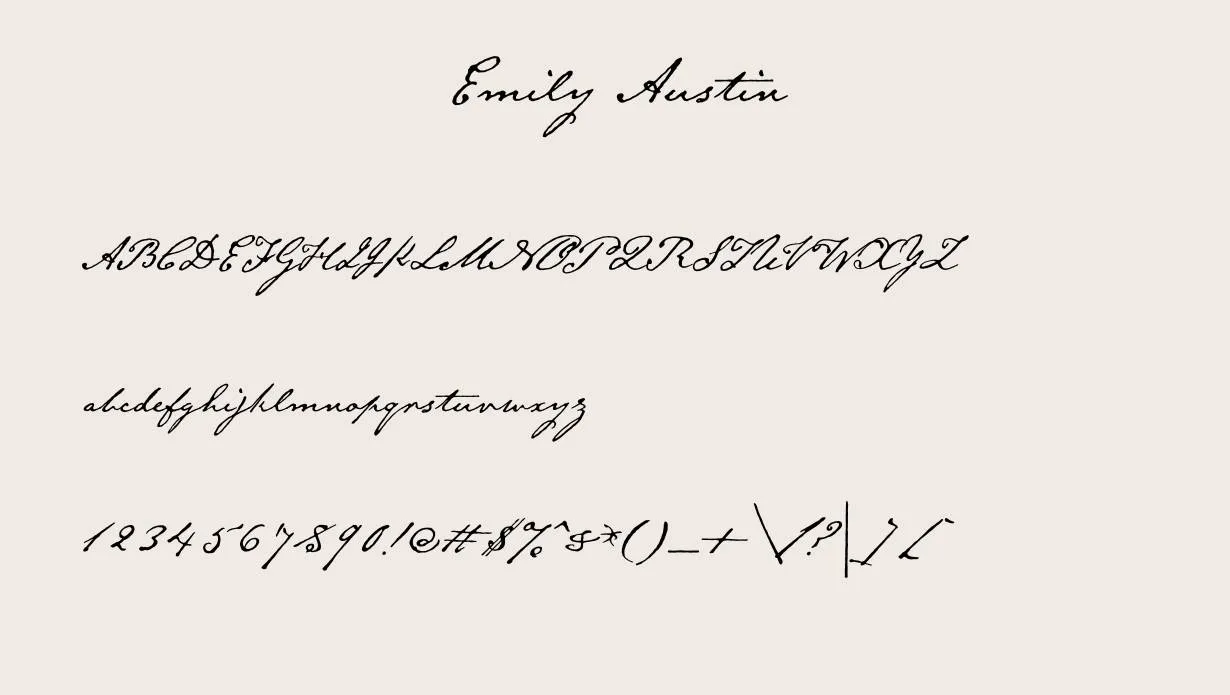 Emily Austin
ABCDEFGHIJKLMNOPQRSTUVWXYZ
abcdefghijklmnopqrstuvwxyz
1234567890!@#$%^&*()_+\/?|][